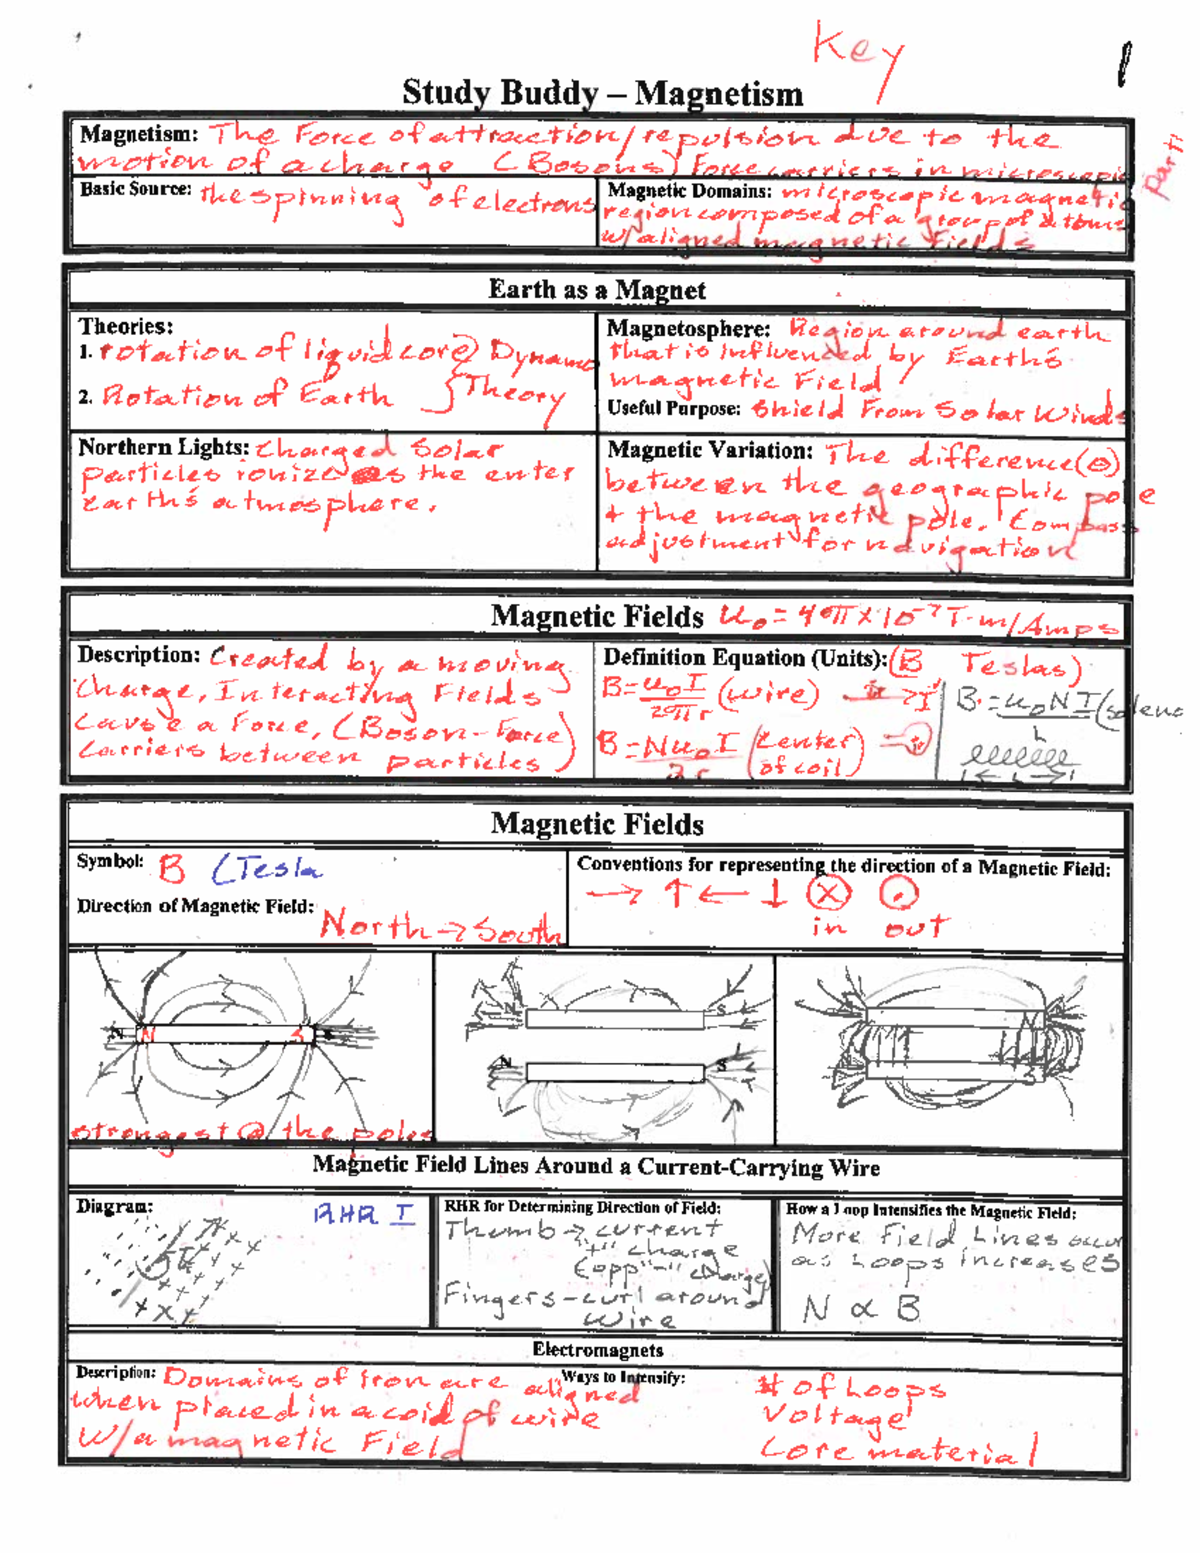 Key
1
Study Buddy – Magnetism
Magnetism: The Force of attraction/repulsion due to the
motion of a charge (Bosons) Force carriers in microscopic
Parti
Basic Source: the spinning of electrons
Magnetic Domains: microscopic magnetic
region composed of a group of atoms
w/aligned magnetic Fields
Earth as a Magnet
Theories:
1. rotation of liquid core } Dynamo
2. Rotation of Earth } Theory
Magnetosphere: Region around earth
that is influenced by Earth's
magnetic Field
Useful Purpose: Shield From Solar Winds
Northern Lights: Charged Solar
particles ionize as the enter
earth's atmosphere.
Magnetic Variation: The difference (θ)
between the geographic pole
+ the magnetic pole. Compass
adjustment for navigation
Magnetic Fields u₀ = 4π×10⁻⁷ T·m/Amps
Description: Created by a moving
Charge, Interacting Fields
Cause a Force, (Boson-Force)
Carriers between particles
Definition Equation (Units): (B Teslas)
B = u₀I / 2πr (wire) I
B = Nu₀I / 2r (Center of coil)
B = u₀NI / L (soleno
L
Magnetic Fields
Symbol: B (Tesla
Direction of Magnetic Field: North → South
Conventions for representing the direction of a Magnetic Field:
→ ↑ ← ↓ ⊗ ⊙
in out
N N S S
strongest @ the poles
N S
N S
N
S
Magnetic Field Lines Around a Current-Carrying Wire
Diagram: RHR I
RHR for Determining Direction of Field:
Thumb → current
"+" charge
(opp "-" charge)
Fingers - curl around
wire
How a Loop Intensifies the Magnetic Field:
More Field Lines occur
as Loops increases
N ∝ B
Electromagnets
Description: Domains of iron are aligned
when placed in a coid of wire
w/a magnetic Field
Ways to Intensify:
# of Loops
Voltage
Core material